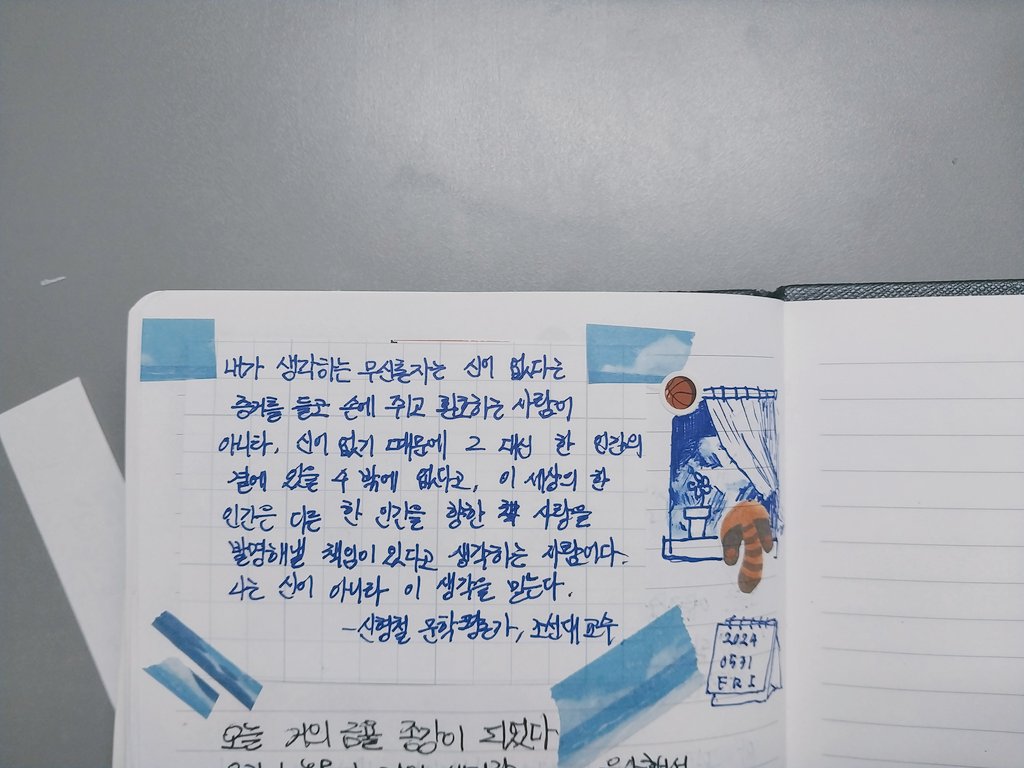 내가 생각하는 무신론자는 신이 없다는
증거를 들고 손에 쥐고 환호하는 사람이
아니라, 신이 없기 때문에 그 대신 한 인간의
곁에 있을 수 밖에 없다고, 이 세상의 한
인간은 다른 한 인간을 향한 책 사랑을
발명해낼 책임이 있다고 생각하는 사람이다.
나는 신이 아니라 이 생각을 믿는다.
-신형철 문학평론가, 조선대 교수
2024
0531
FRI
오늘 거의 종강이 되었다